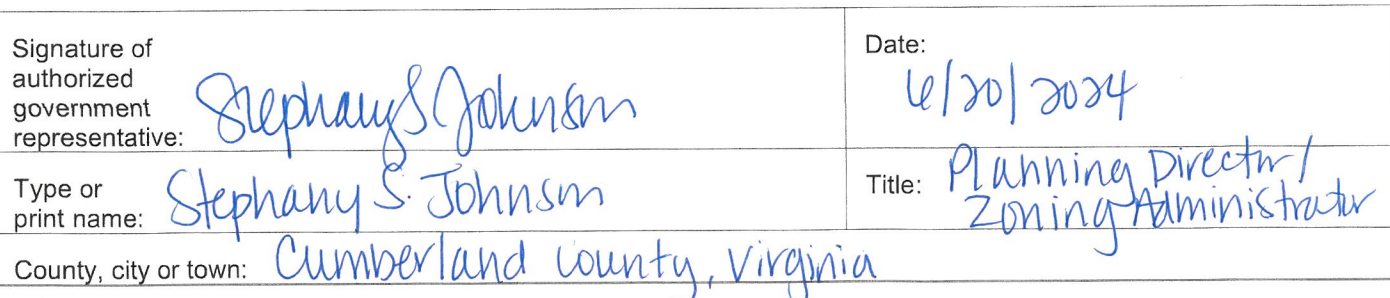 Signature of
authorized
government
representative: Stephany S Johnson
Date:
6/20/2024
Type or
print name: Stephany S. Johnson
Title: Planning Director/
Zoning Administrator
County, city or town: Cumberland County, Virginia